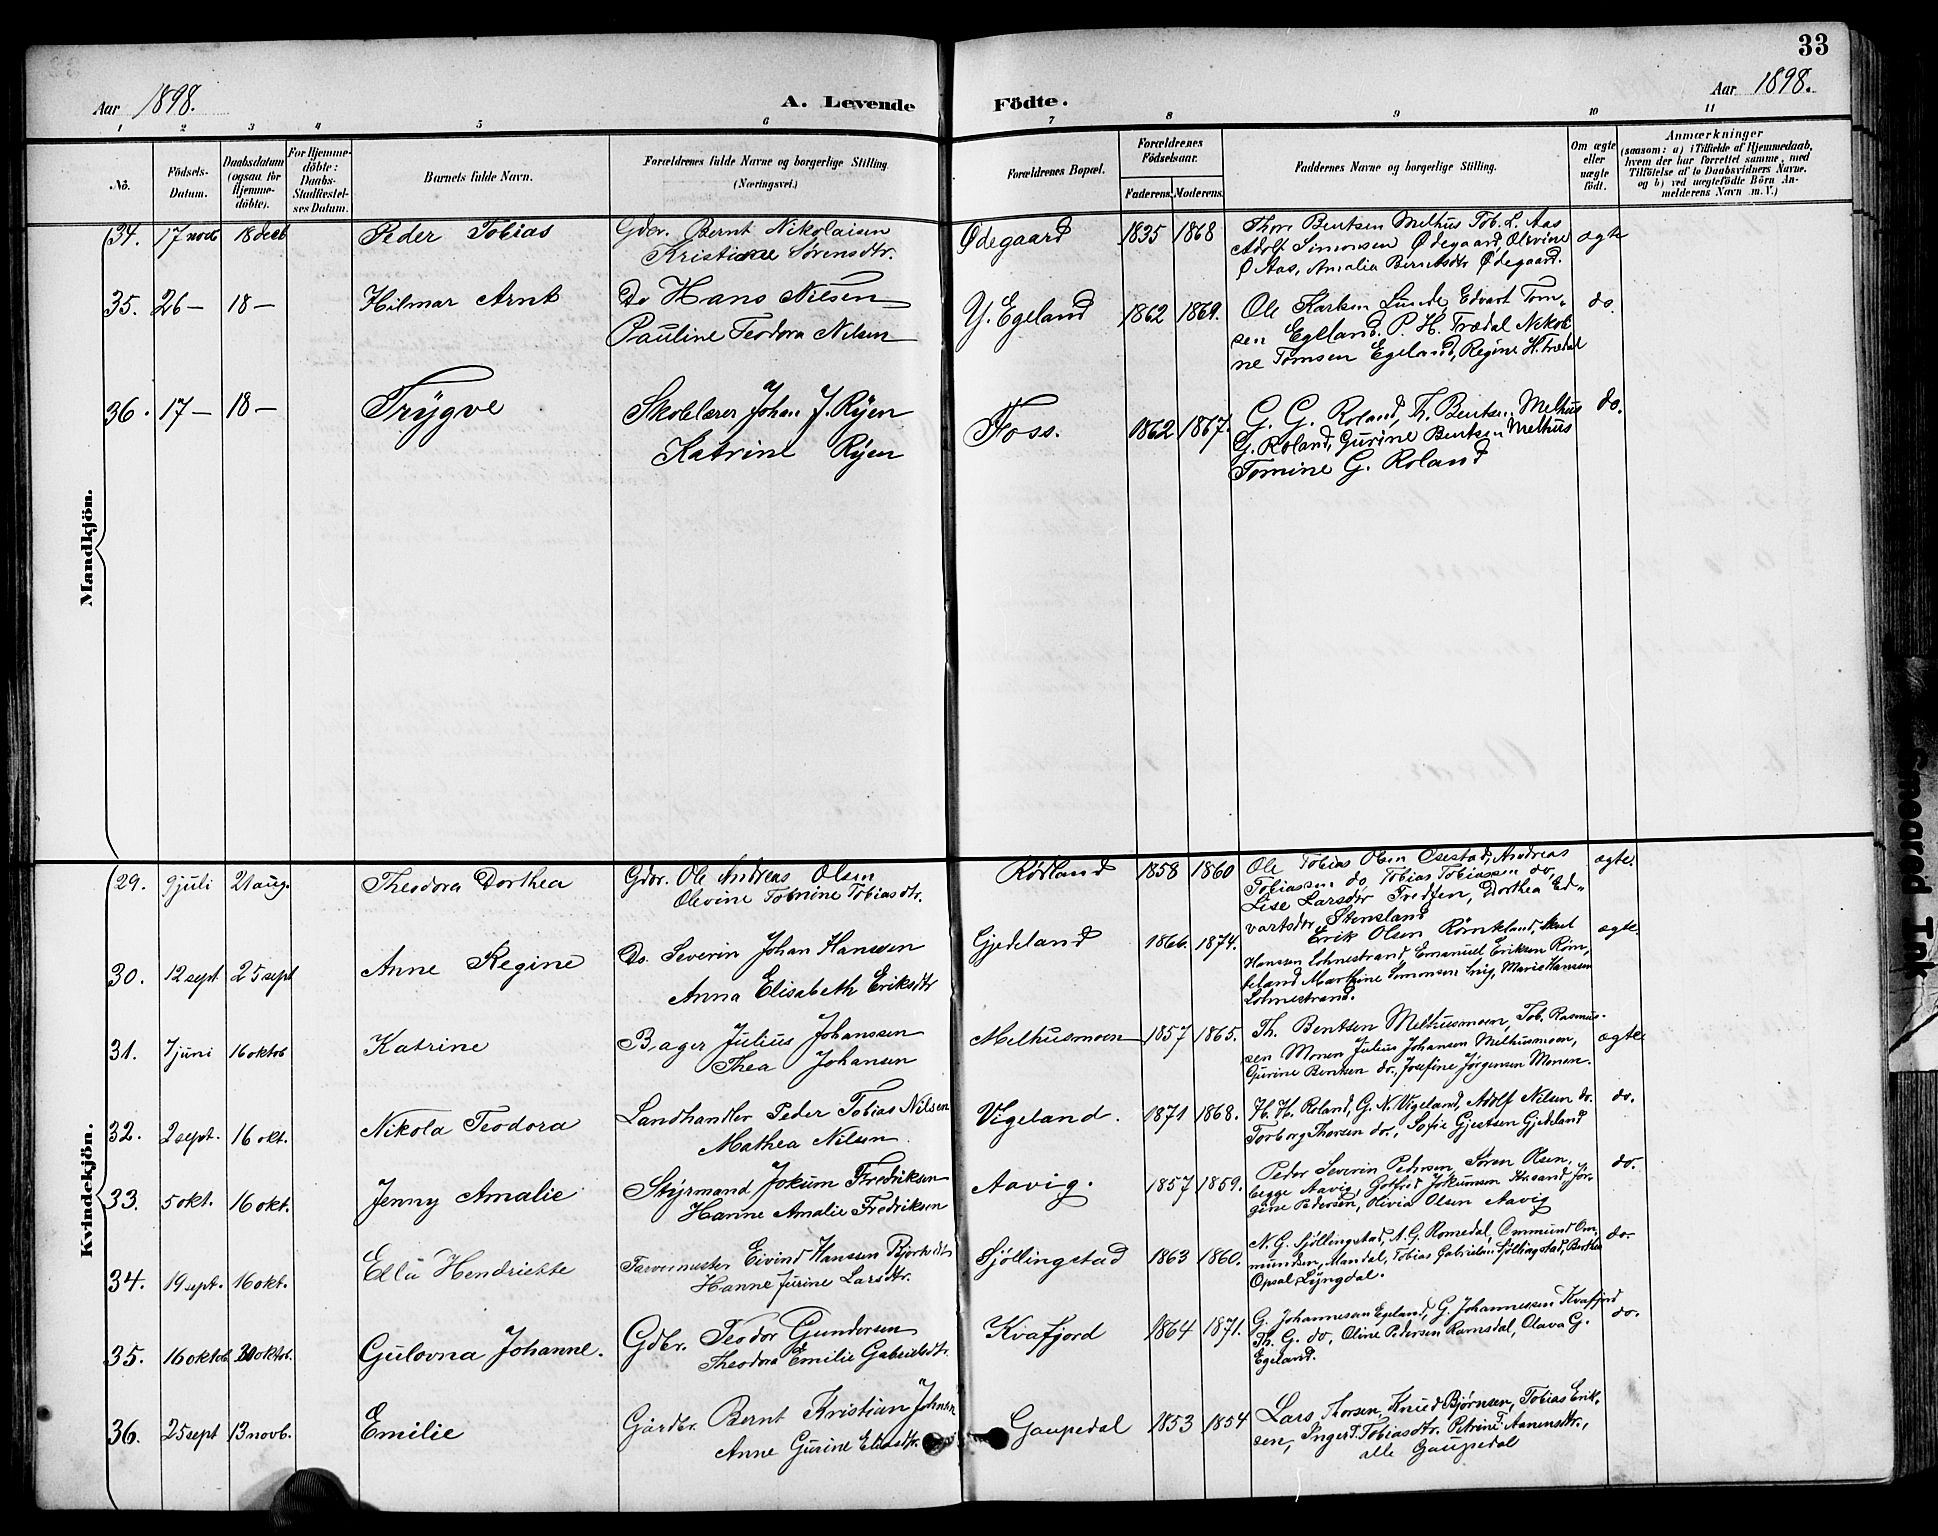 33
Aar 1898. A. Levende Födte. Aar 1898.
1 2 3 4 5 6 7 8 9 10 11
No.
Födsels-Datum.
Daabsdatum (ogsaa for Hjemme-döbte).
For Hjemme-döbte: Daabs-Stadfæstel-ses Datum.
Barnets fulde Navn.
Forældrenes fulde Navne og borgerlige Stilling. (Næringsvei.)
Forældrenes Bopæl.
Forældrenes Födselsaar.
Faderens. Moderens.
Faddernes Navne og borgerlige Stilling.
Om ægte eller uægte födt.
Anmærkninger
(saasom: a) i Tilfælde af Hjemmedaab,
hvem der har forrettet samme, med
Tilföielse af to Daabsvidners Navne.
og b) ved uægtefödte Börn An-
melderens Navn m. V.)
Mandkjön.
34. 17 novb 18 decb Peder Tobias Gdbr. Bernt Nikolaisen
Kristiane Sörensdtr. Ødegaard 1835 1868 Thore Bentsen Melhus Tob. L. Aas
Adolf Simonsen Ødegaard, Olevine
O Aas, Amalia Berntsdtr Ødegaard. ægte
35. 26 — 18 — Hilmar Arnt Do Hans Nilsen
Pauline Teodora Nilsen Y. Egeland 1862 1869. Ole Karlsen Lunde, Edvart Tom-
sen Egeland. P. H. Trædal Nikoli-
ne Tomsen Egeland, Regine H. Trædal do.
36. 17 — 18 — Trygve Skolelærer Johan J. Ryen
Katrine Ryen Foss. 1862 1867. G. G. Roland, Th. Bentsen Melhus
G. Roland, Gurine Bentsen Melhus
Tomine G. Roland do.
Kvindekjön.
29. 9 juli 21 aug. Theodora Dorthea Gdbr. Ole Andreas Olsen
Olevine Tomine Tobiasdtr. Rödland 1858 1860 Ole Tobias Olsen Osestad, Andreas
Tobiassen do, Tobias Tobiassen do,
Lise Larsdtr Tredjen, Dorthea Ed-
vartsdtr Stensland ægte.
30. 12 sept 25 sept Anne Regine Do. Severin Johan Hanssen
Anna Elisabeth Eriksdtr Gjedeland 1866. 1874. Erik Olsen
Hansen Lohnestrand, Emanuel Eriksen Röm-
keland Marthine Simonsen Marie Hansen
Lohnestrand. ægte.
31. 7 juni 16 oktob Katrine Bager Julius Johanssen
Thea Johansen Melhusmoen 1857 1865. Th. Bentsen Melhusmoen, Tob. Rasmus-
sen Monen Julius Johansen Melhusmoen,
Gurine Bentsen do., Josefine Jörgensen Monen. ægte.
32. 2 sept. 16 okt. Nikola Teodora Landhandler Peder Tobias Nilsen
Mathea Nilsen. Vigeland. 1871 1868. H. H. Roland, G. N. Vigeland, Adolf Nilsen do.
Torborg Thorsen do., Sofie Gjertsen Gjedeland do.
33. 5 okt. 16 okt. Jenny Amalie Styrmand Jokum Fredriksen
Hanne Amalie Fredriksen Aavig. 1857 1859. Peder Severin Pedersen, Sören Olsen,
begge Aavig, Gotfred Jokumsen Krsand Jör-
gine Pedersen, Olivia Olsen Aavig do.
34. 19 sept. 16 okt. Ella Hendriette Farvemester Eivind Hanssen
Hanne Jurine Larsdtr. Sjöllingstad 1863 1860. N. G. Sjöllingstad, A. G. Romedal, Ommund Om-
mundsen, Mandal, Tobias Gabrielsen Sjöllingstad, Berthea
Opsal, Lyngdal. do.
35. 16 oktob. 30 oktob. Gulovna Johanne. Gdbr. Teodor Gundersen
Theodora Emilie Gabrielsdtr. Kvafjord 1864 1871. G. Johannessen Egeland, G. Johannessen Kvafjord
Th. G. do, Oline Pedersen Ramsdal, Olava G.
Egeland. do.
36. 25 sept 13 novb. Emilie Gårdbr. Bernt Kristian Johnsen
Anne Gurine Eliasdtr. Gaupedal 1853 1854 Lars Thorsen, Knud Björnsen, Tobias Erik-
sen, Inger T. Tobiasdtr. Petrine T. Aanensdtr.,
alle Gaupedal